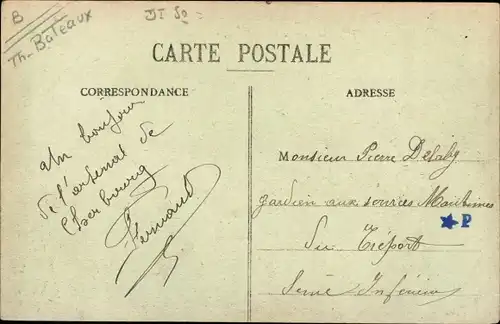 B
Th. Bateaux
CARTE POSTALE
CORRESPONDANCE
ADRESSE
un bonjour
de l'arsenal de
Cherbourg
Fernand
Monsieur Pierre Delaby
gardien aux sources Maritimes
Du Tréport
Seine Inférieure
P